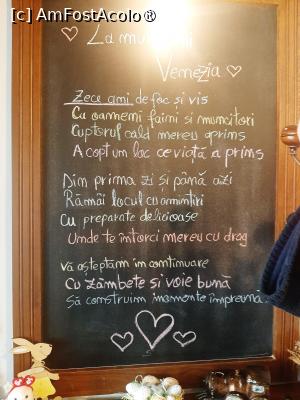 [c] AmFostAcolo®
La mulți ani
Venezia
Zece ani de foc și vis
Cu oamemi faini și muncitori
Cuptorul cald mereu aprins
A copt um loc ce viață a prins
Din prima zi și până azi
Rămâi locul cu amintiri
Cu preparate delicioase
Unde te întorci mereu cu drag
vă așteptăm în continuare
Cu zâmbete și voie bună
Să construim momente împreună